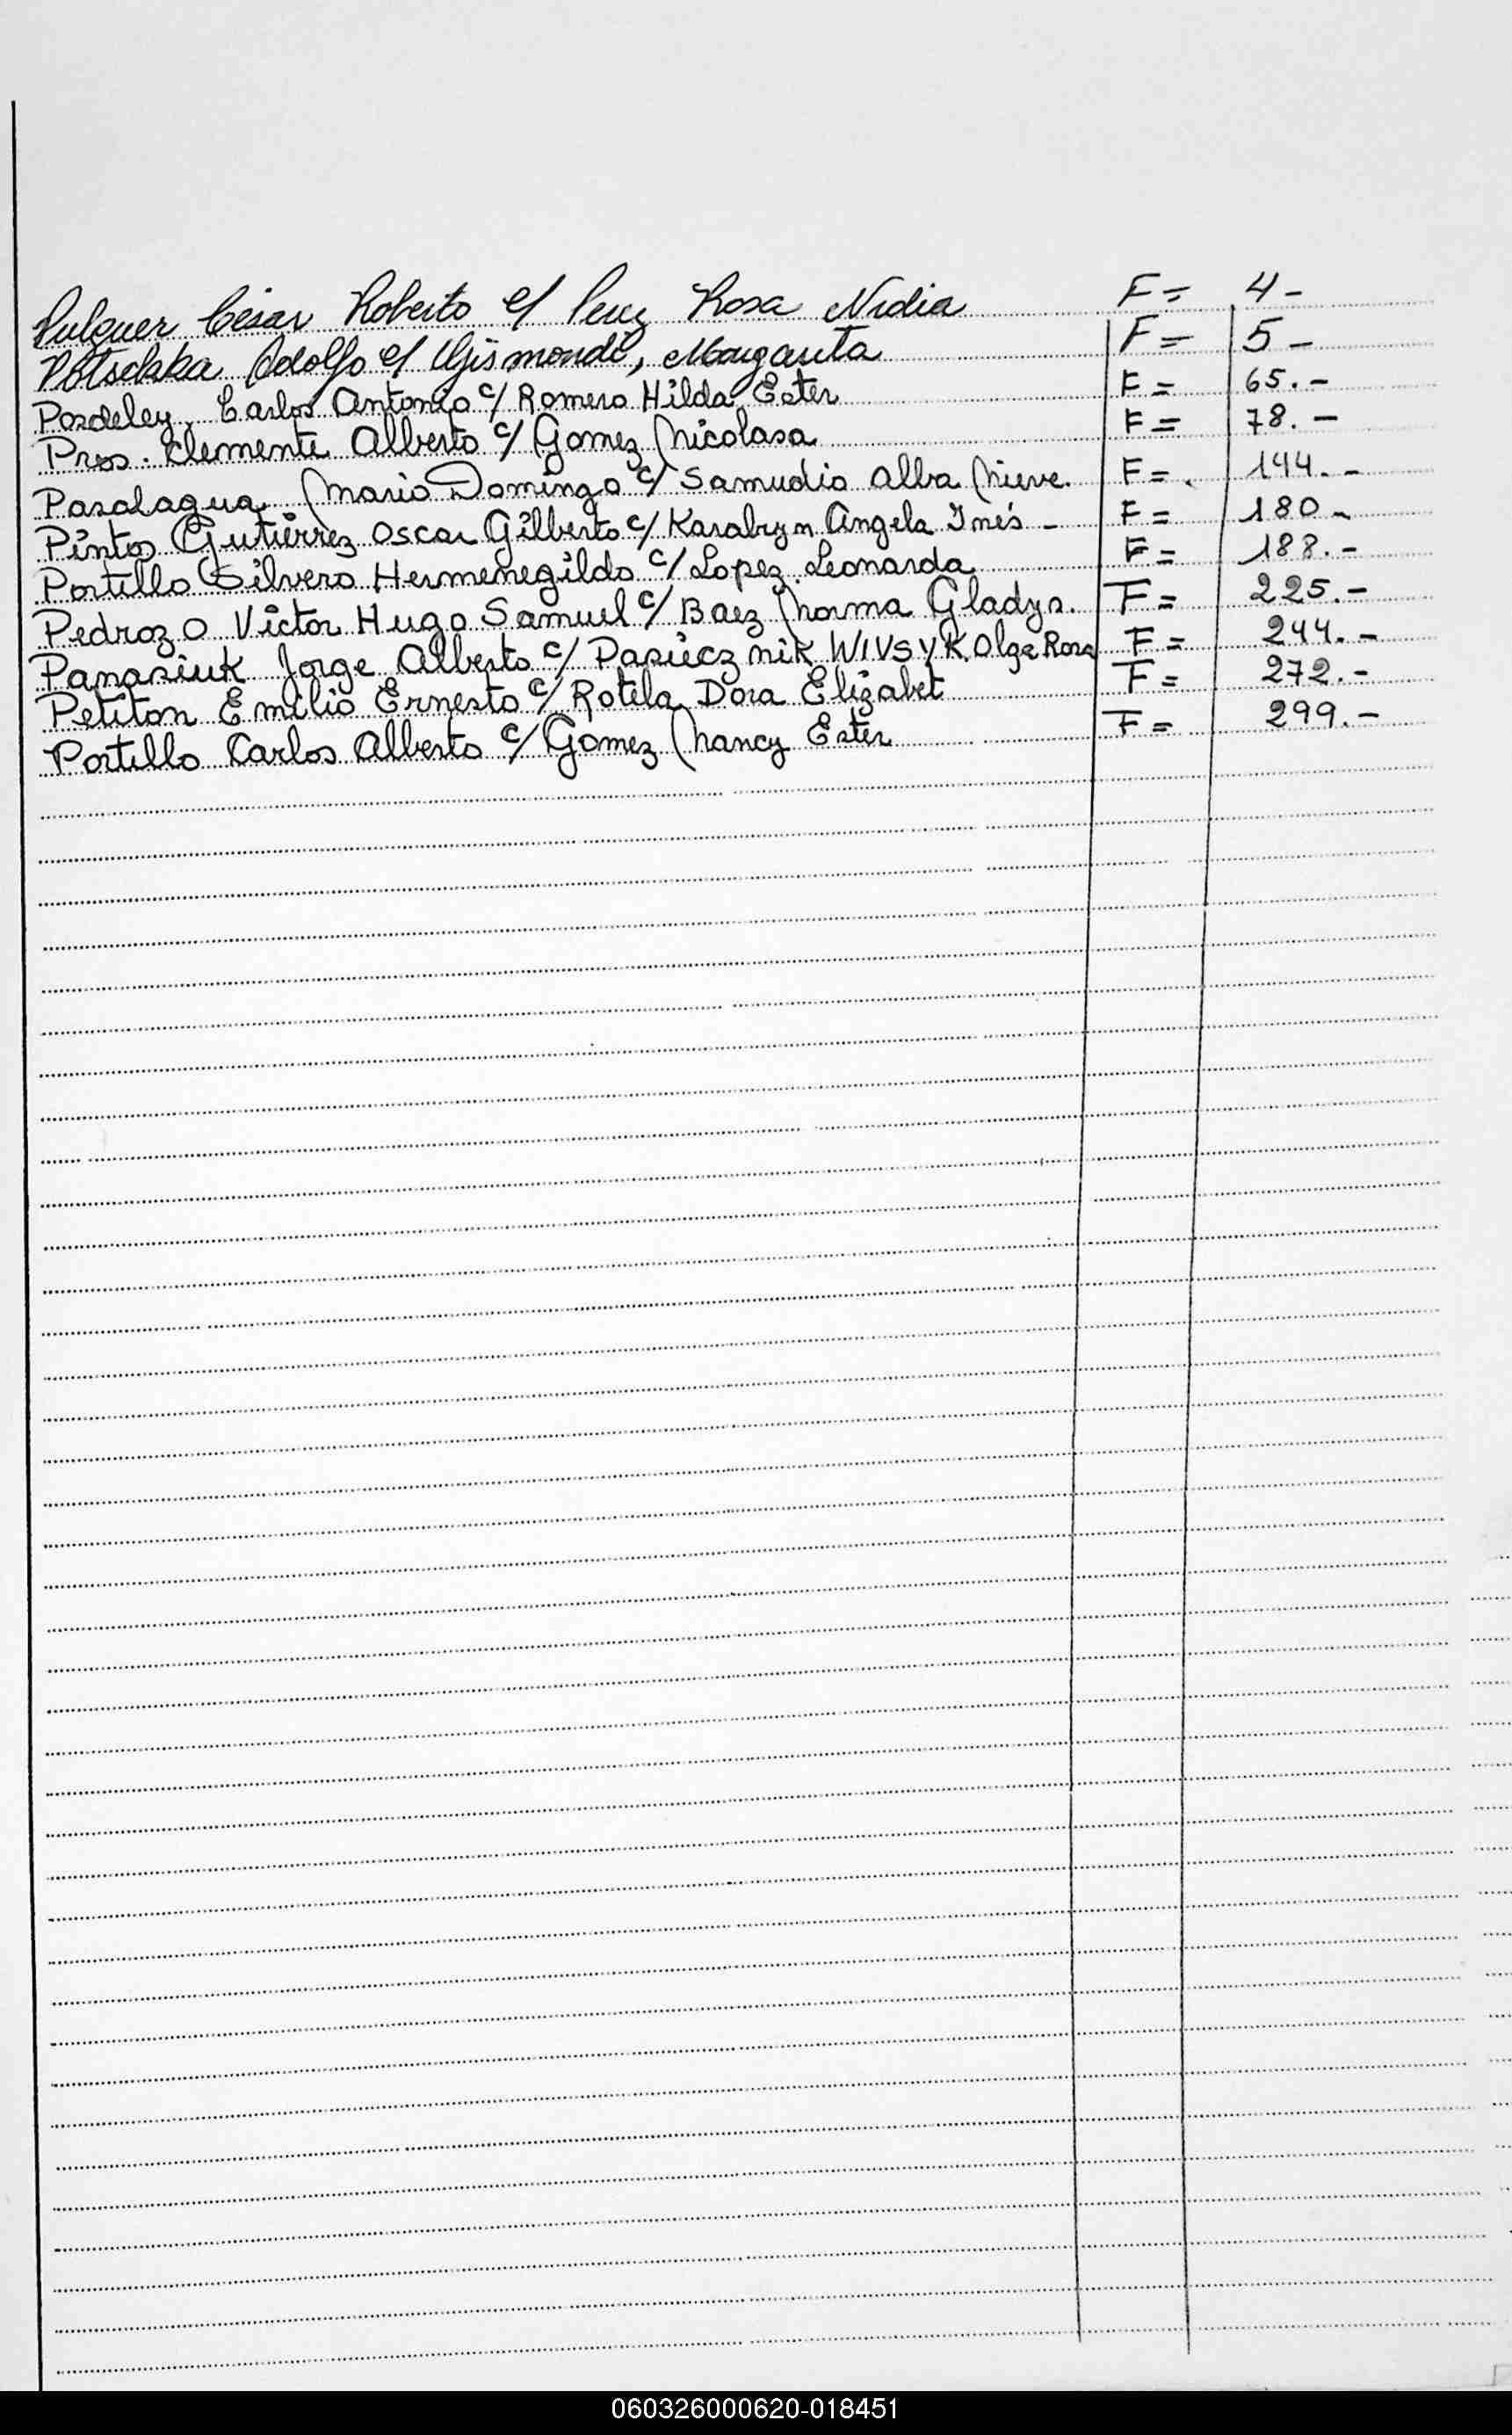 Pulquer César Roberto c/ Peru Rosa Nidia F= 4-
Potschka Adolfo c/ Gismondi, Margarita F= 5-
Posdeley, Carlos Antonio c/ Romero Hilda Ester F= 65.-
Pros. Clemente Alberto c/ Gomez Nicolasa F= 78.-
Pasalagua Mario Domingo c/ Samudio Alba Nieve. F= 144.-
Pintos Gutiérrez Oscar Gilberto c/ Karabyn Angela Inés - F= 180-
Portillo Silvero Hermenegildo c/ Lopez Leonarda F= 188.-
Pedrozo Victor Hugo Samuel c/ Baez Norma Gladys. F= 225.-
Panasiuk Jorge Alberto c/ Pasiecznik WIVSYK Olga Rosa F= 244.-
Petiton Emilio Ernesto c/ Rotela Dora Elizabet F= 272.-
Portillo Carlos Alberto c/ Gomez Nancy Ester F= 299.-
060326000620-018451